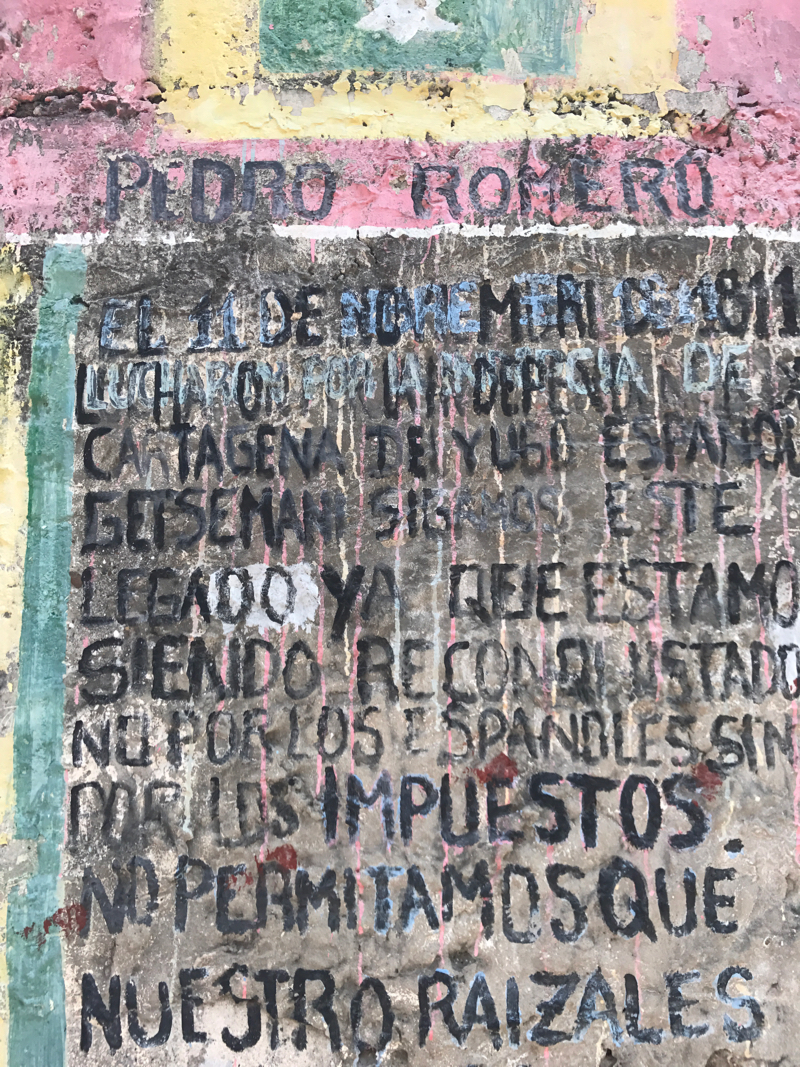 PEDRO ROMERO
EL 11 DE NOVIEMBRI DE 1811
LUCHARON POR LA INDEPENDECIA DE
CARTAGENA DEL YUGO ESPAÑOL
GETSEMANI SIGAMOS ESTE
LEGADO YA QUE ESTAMO
SIENDO RECONQUISTADO
NO POR LOS ESPANOLES SIN
POR LOS IMPUESTOS.
NO PERMITAMOS QUE
NUESTRO RAIZALES